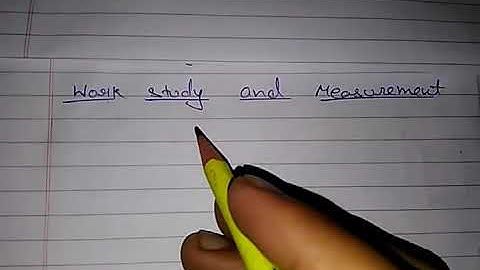 Work study and Measurement